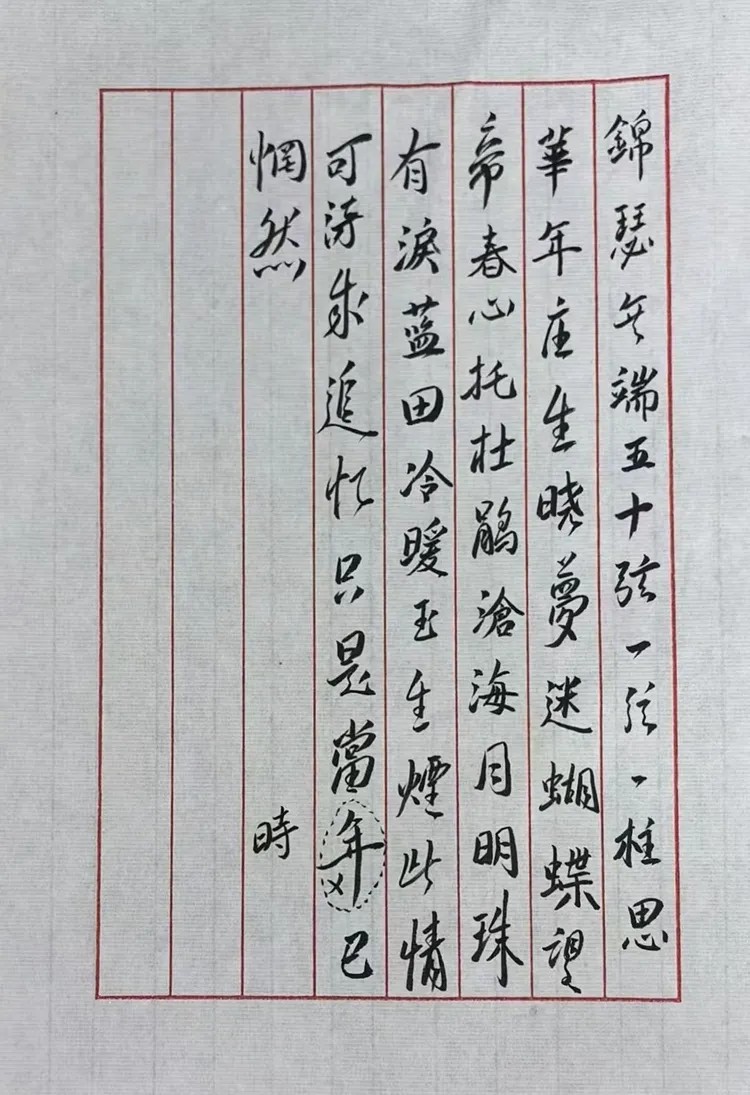 錦瑟无端五十弦一弦一柱思
華年庄生晓夢迷蝴蝶望
帝春心托杜鹃滄海月明珠
有淚藍田冷暖玉生煙此情
可待成追忆只是當年已
惘然
時